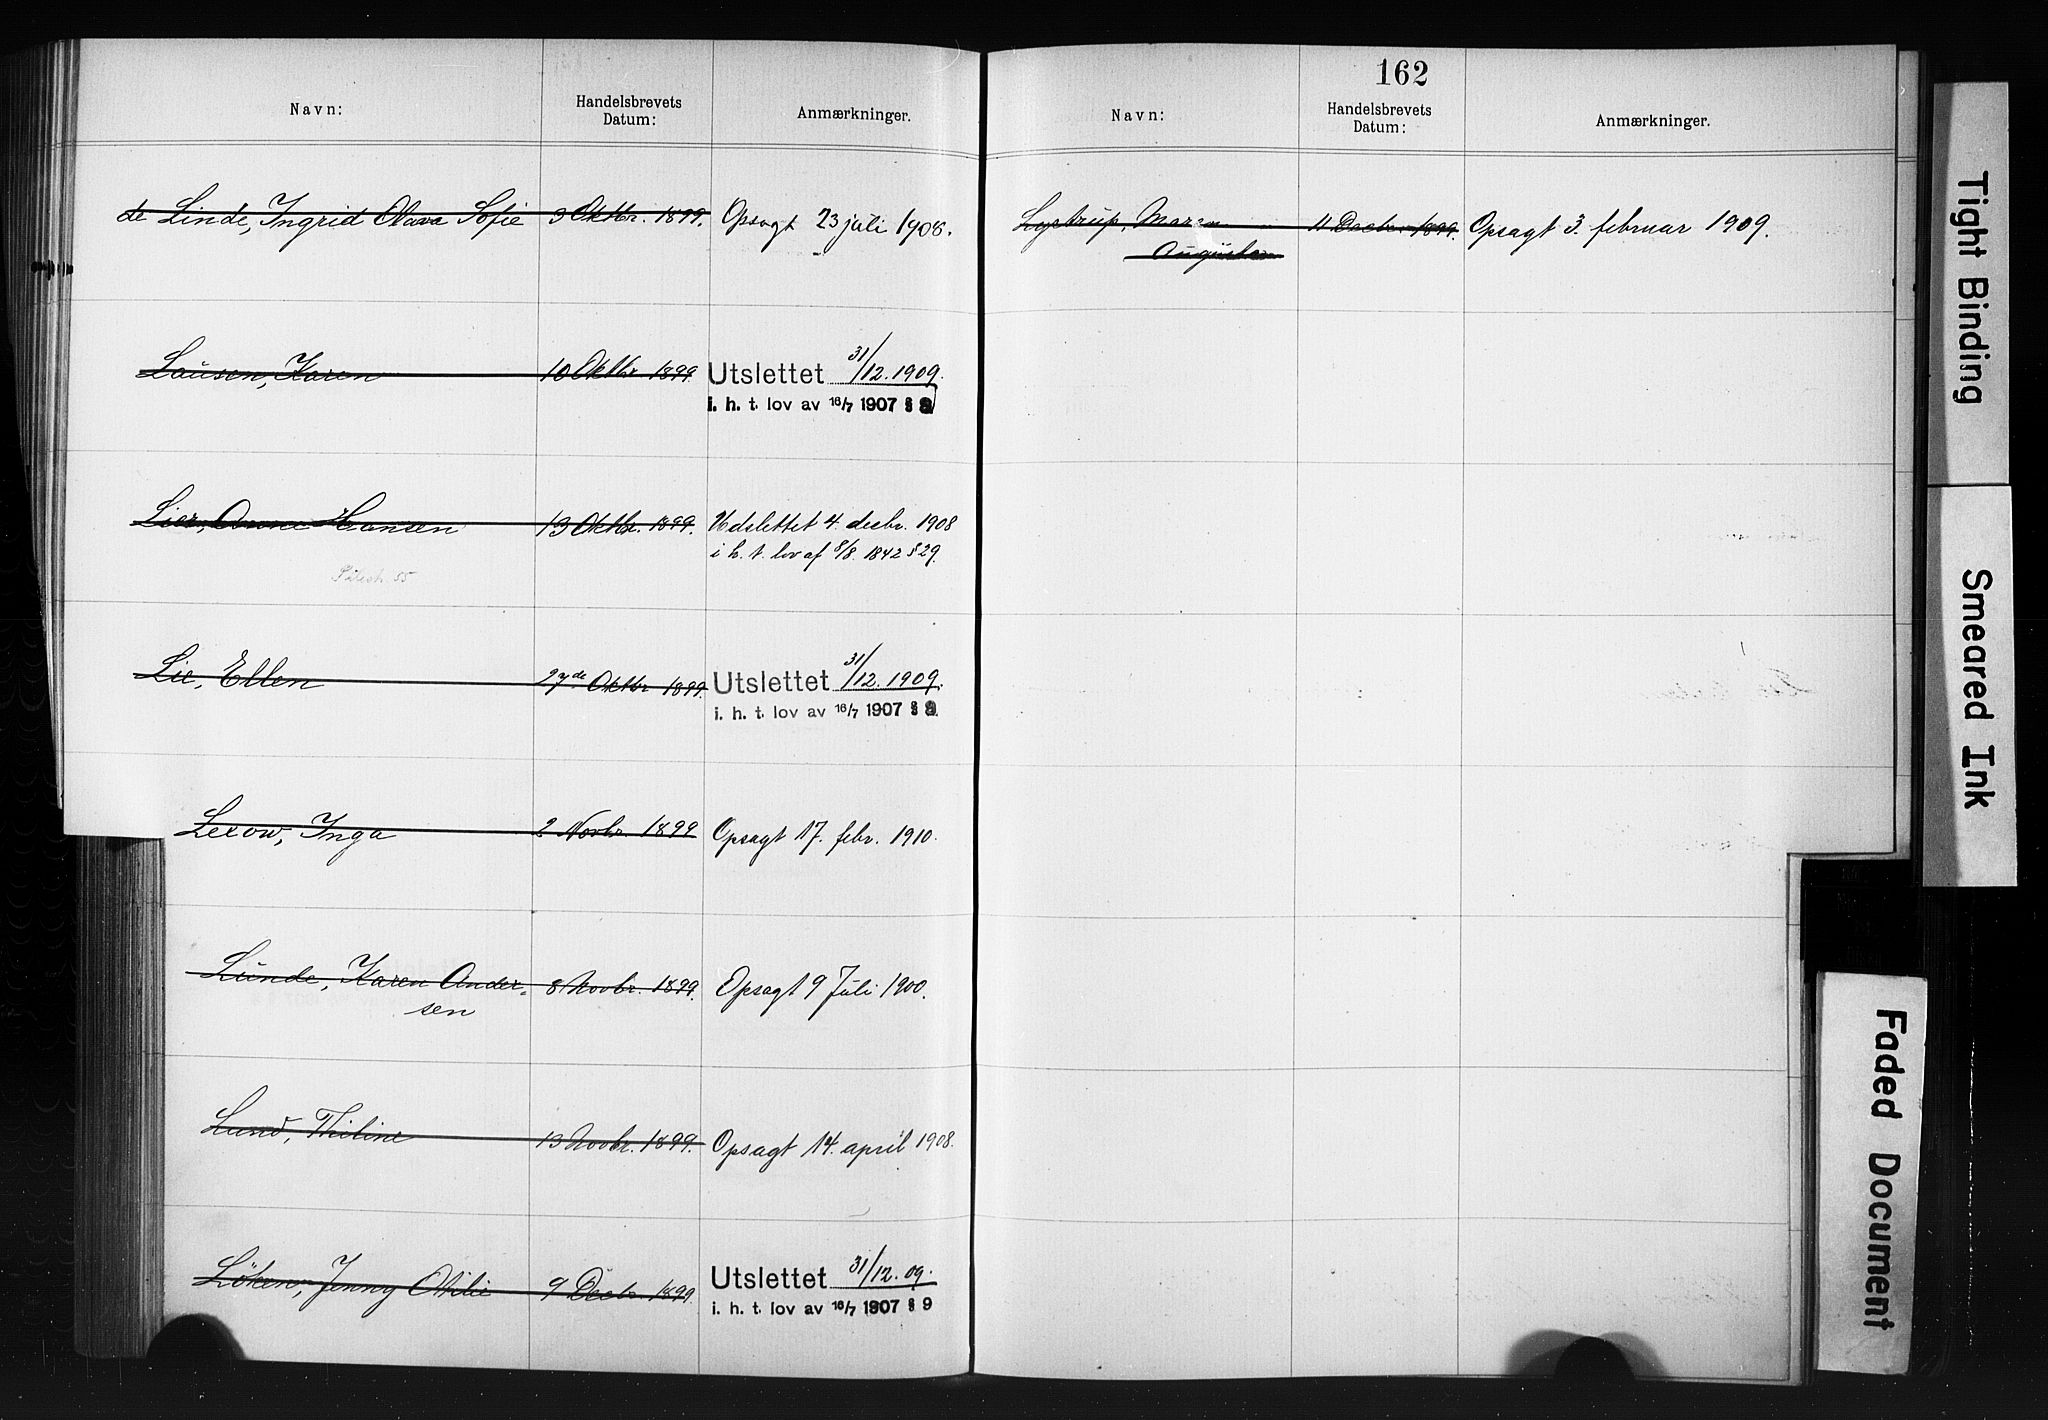 Navn:
Handelsbrevets
Datum:
Anmærkninger.
de Linde, Ingrid Olava Sofie 3 Oktbr. 1899. Opsagt 23 juli 1908.
Lausen, Karen 10 Oktbr 1899 Utslettet 31/12. 1909.
i. h. t. lov av 16/7 1907 § 9
Lier, Anne Hansen 13 Oktbr. 1899. Udslettet 4. desbr. 1908
i h. t. lov af 8/8. 1842 § 29.
55
Lie, Ellen 27de Oktbr 1899. Utslettet 31/12. 1909.
i. h. t. lov av 16/7 1907 § 9.
Lexow, Inga 2 Novbr. 1899 Opsagt 17. febr. 1910.
Lunde, Karen Ander-
sen 8 Novbr. 1899. Opsagt 9 Juli 1900.
Lund, Thiline 13 Novbr. 1899. Opsagt 14. april 1908.
Löken, Jenny Otilie 9 Decbr. 1899. Utslettet 31/12. 09.
i. h. t. lov av 16/7 1907 § 9
162
Navn:
Handelsbrevets
Datum:
Anmærkninger.
Lystrup, Maren 11 Decbr. 1899. Opsagt 3. februar 1909.
Augusta
Tight Binding
Smeared Ink
Faded Document